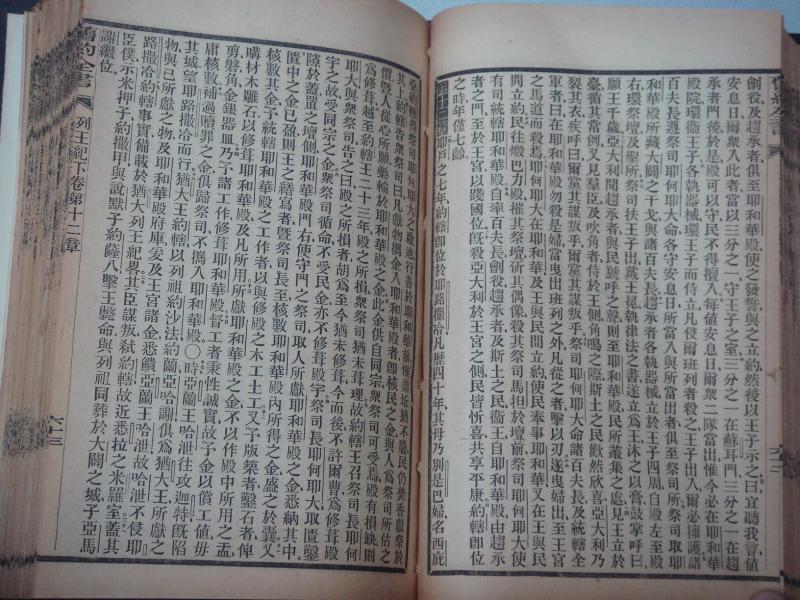 劍役及趨承者俱至耶和華殿使之發誓與之立約然後以王子示之曰宜聽我言值
安息日爾眾入此者當以三分之一守王子之室三分之一在蘇耳門三分之一在趨
承者門後於是殿可以守民不得擅入每值安息日爾眾二隊當出惟今必在耶和華
殿院環衞王子各執器械環王子而侍立凡侵爾班列者殺之王子出入爾必擁護諸
百夫長遵祭司耶何耶大命各守安息日所當入與當出者俱至祭司所祭司取耶
和華殿所藏大闢之干戈與諸百夫長趨承者各執器械立於王子四周自殿左至殿
右環祭壇及聖所祭司扶王子出戴王冕執律法之書遂立為王沐之以膏鼓掌呼曰
願王千歲亞大利聞趨承者與民號呼之聲則至耶和華殿民所叢集之處見王立於
臺循其常例又見羣臣及吹角者侍於王側角鳴之際斯土之民歡然欣喜亞大利乃
裂其衣疾呼曰爾黨其謀叛乎爾黨其謀叛乎祭司耶何耶大命諸百夫長及統轄全
軍者曰在耶和華殿勿殺是婦當曳出班列之外凡從之者擊以刃遂曳婦出至王宮
之馬道而殺焉耶何耶大在耶和華及王與民間立約使民奉事耶和華又在王與民
間立約民往燬巴力殿摧其祭壇斫其偶像殺其祭司馬担於壇前祭司耶何耶大
有司統轄耶和華殿自率百夫長劍役趨承者及斯土之民衞王自耶和華殿由趨承
者之門至於王宮以踐國位既殺亞大利於王宮之側民皆忻喜共享平康約轄即位
之時年僅七齡
第十二章耶戶之七年約轄即位於耶路撒冷凡歷四十年其母乃別是巴婦名西庇
亞約轄得祭司耶何耶大之啟迪行善於耶和華前惟崇坵猶不廢民仍焚香獻祭於
其上約轄告眾祭司曰凡獻物獻金入耶和華殿者即核民之金與人為祭司所估之
價暨人從心所願樂輸於耶和華殿之金此金供自同宗眾祭司可受焉殿有損缺則
為修葺越至約轄王二十三年殿之所損眾祭司猶未葺理故約轄王召祭司長耶何
耶大與眾祭司告之曰殿之所損者胡為至今猶未修葺今而後不許爾曹為修葺殿
宇之故受同宗之金眾祭司循命不受民金亦不修葺殿宇祭司長耶何耶大取匱鑿
隙於蓋置之壇側耶和華殿門右使守門之祭司取人所獻耶和華殿之金悉納其中
匱中之金已盈則王之繕寫者暨祭司長至核數耶和華殿內所得之金盛之於囊又
核數其金予統轄耶和華殿之工作者以與修殿之木工土工又予版築者鑿石者俾
購材木雕石以修葺耶和華殿及凡所用所獻耶和華殿之金不以作殿中所用之盂
剪磐角金銀器皿乃予諸工作修葺耶和華殿督工者秉性誠實故予金以償工值毋
庸核數補過贖罪之金俱歸祭司不攜入耶和華殿〇時亞蘭王哈泄往攻迦特既陷
其城望耶路撒冷而行猶大王約轄以列祖約沙法約蘭亞哈謝俱為猶大王所獻之
物與己所獻之物及耶和華殿府庫爰及王宮諸金悉餽亞蘭王哈泄故哈泄不侵耶
路撒冷約轄事實備載於猶大列王紀畧其臣謀叛弒約轄故近悉拉之米羅室蓋其
臣僕示米押子約撒甲與說默子約薩八擊王斃命與列祖同葬於大闢之城子亞馬
謝繼位
舊約全書 列王紀下卷 第十二章 六十三